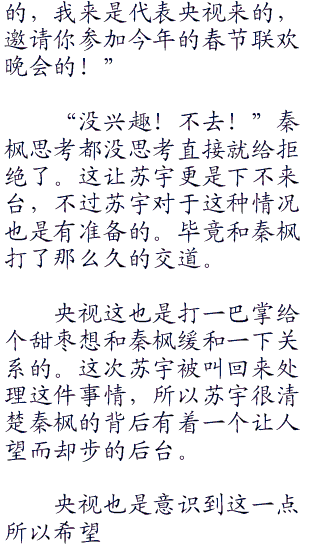 的，我来是代表央视来的，
邀请你参加今年的春节联欢
晚会的！”
“没兴趣！不去！”秦
枫思考都没思考直接就给拒
绝了。这让苏宇更是下不来
台，不过苏宇对于这种情况
也是有准备的。毕竟和秦枫
打了那么久的交道。
央视这也是打一巴掌给
个甜枣想和秦枫缓和一下关
系的。这次苏宇被叫回来处
理这件事情，所以苏宇很清
楚秦枫的背后有着一个让人
望而却步的后台。
央视也是意识到这一点
所以希望